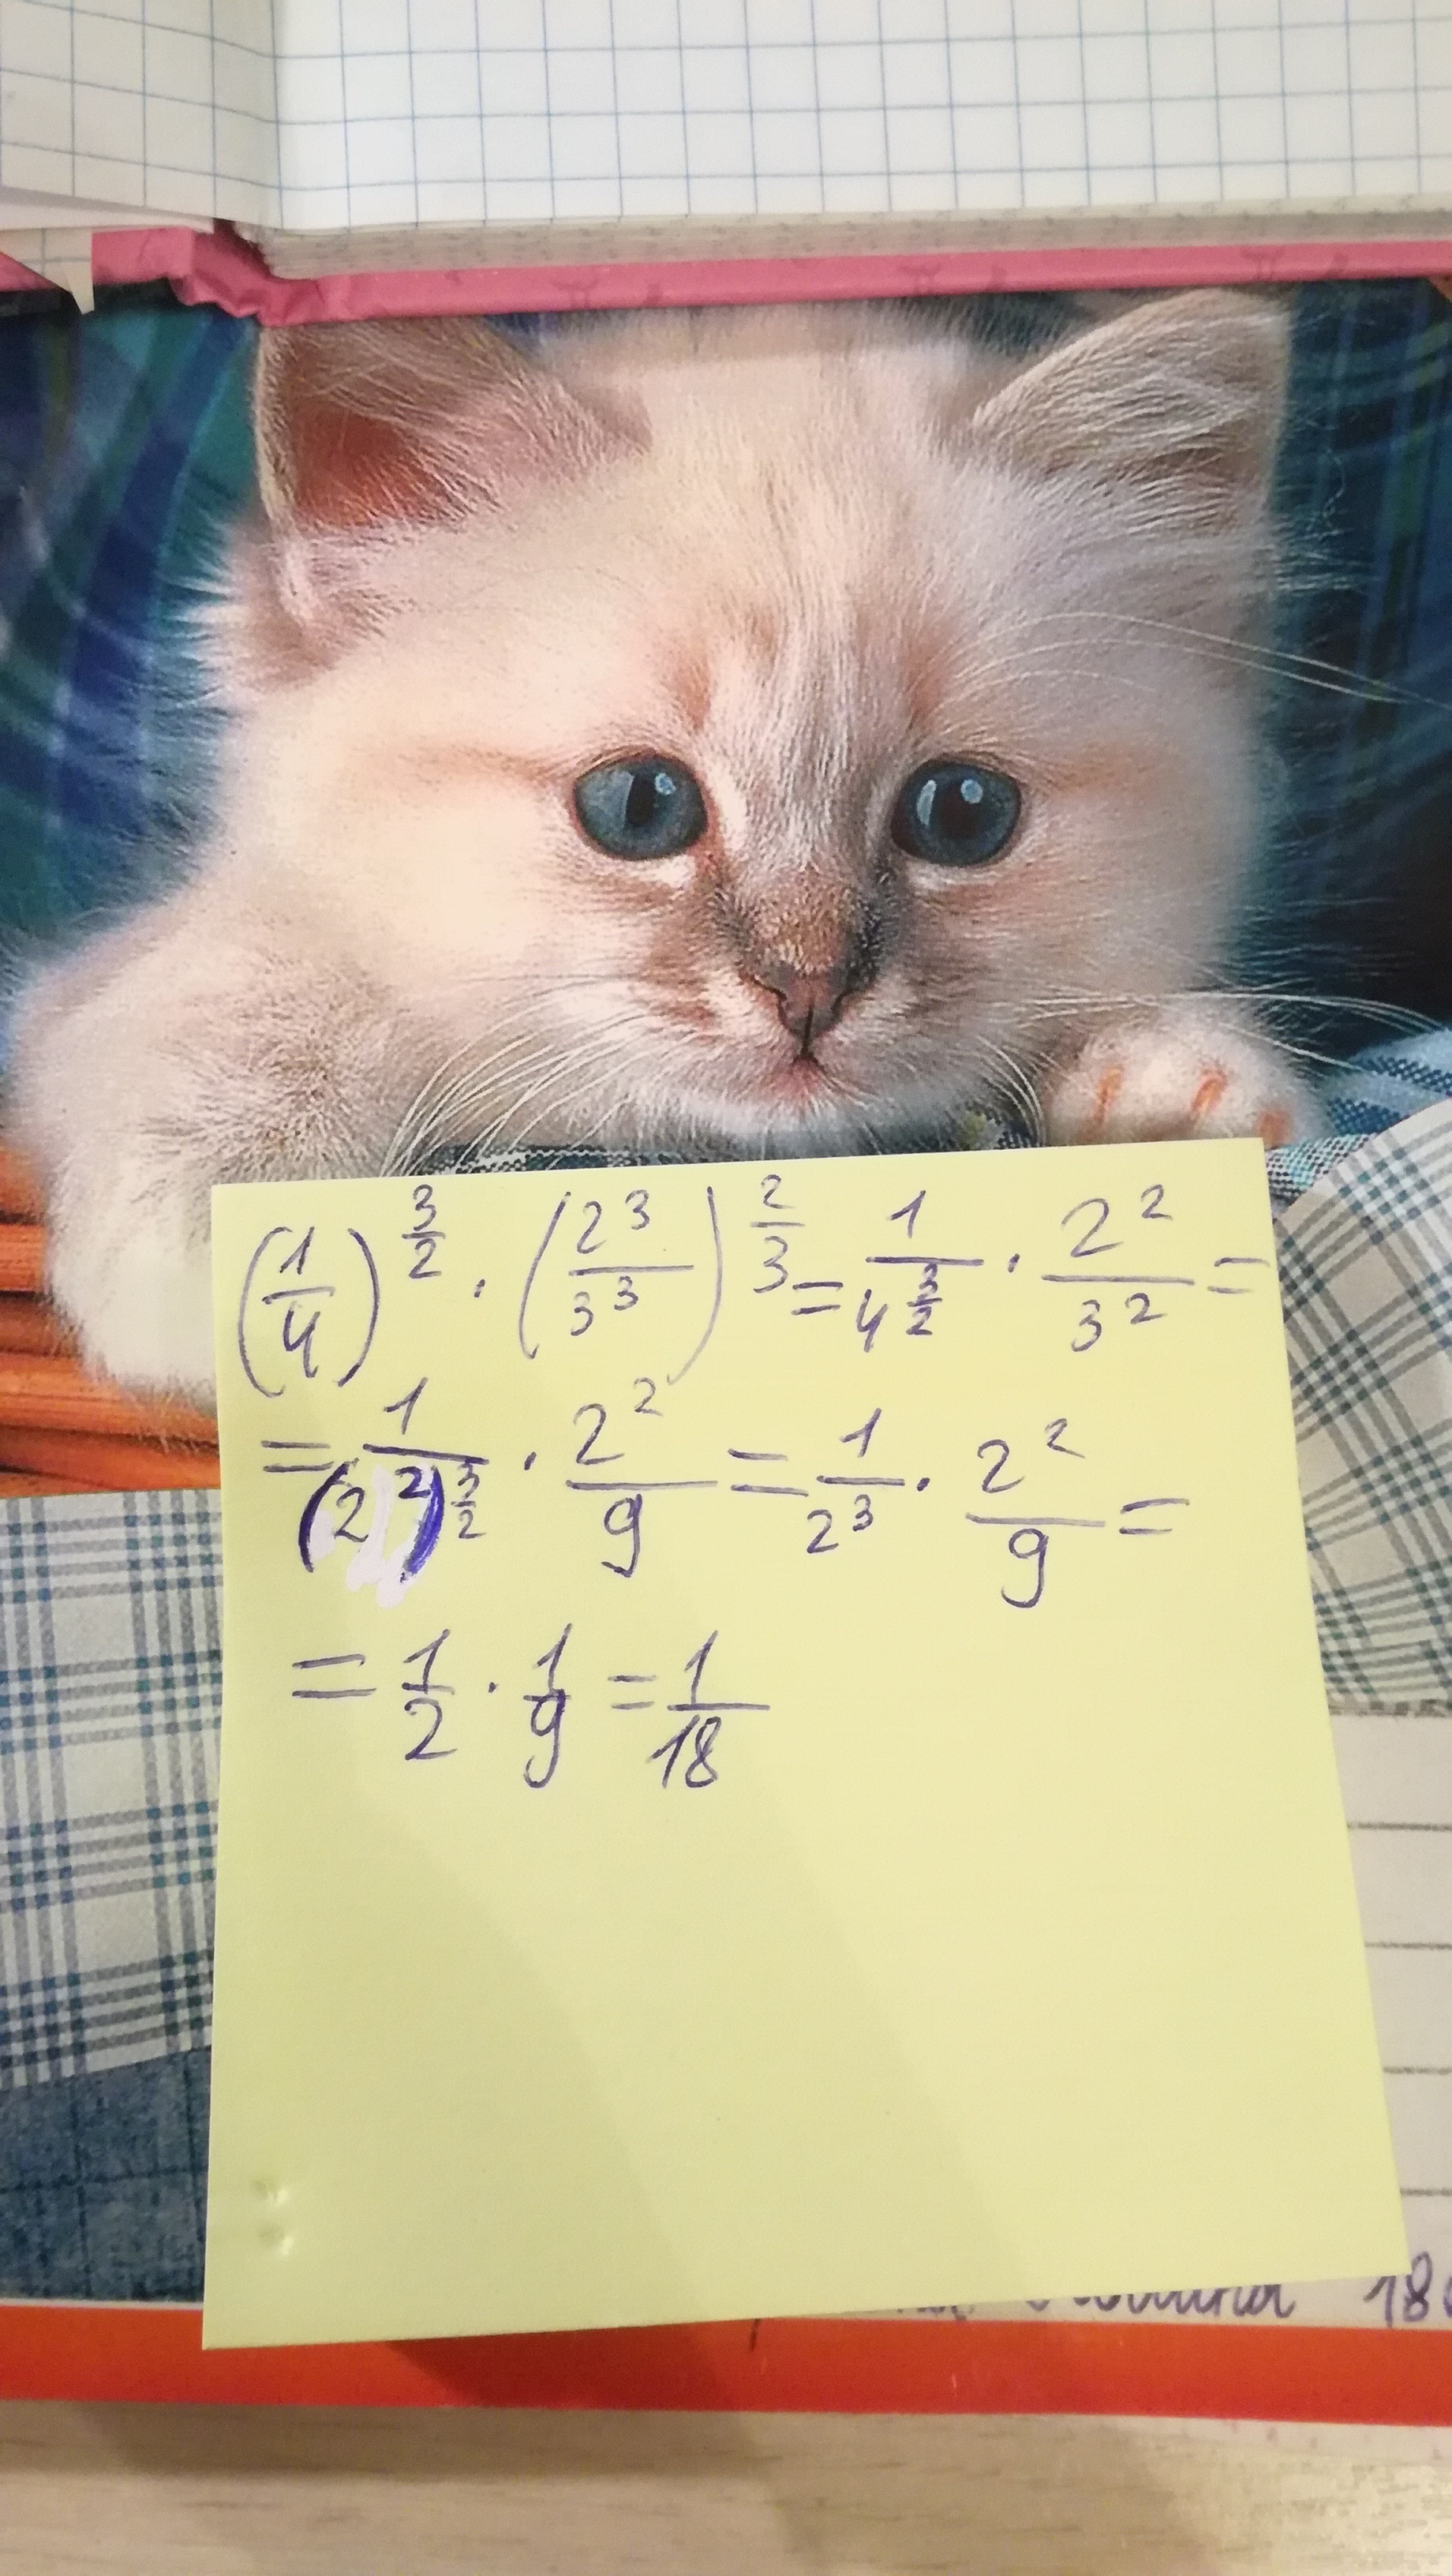 (1/4)^(3/2) · (2^3/3^3)^(2/3) = 1/4^(3/2) · 2^2/3^2 =
= 1/(2^2)^(3/2) · 2^2/9 = 1/2^3 · 2^2/9 =
= 1/2 · 1/9 = 1/18
18